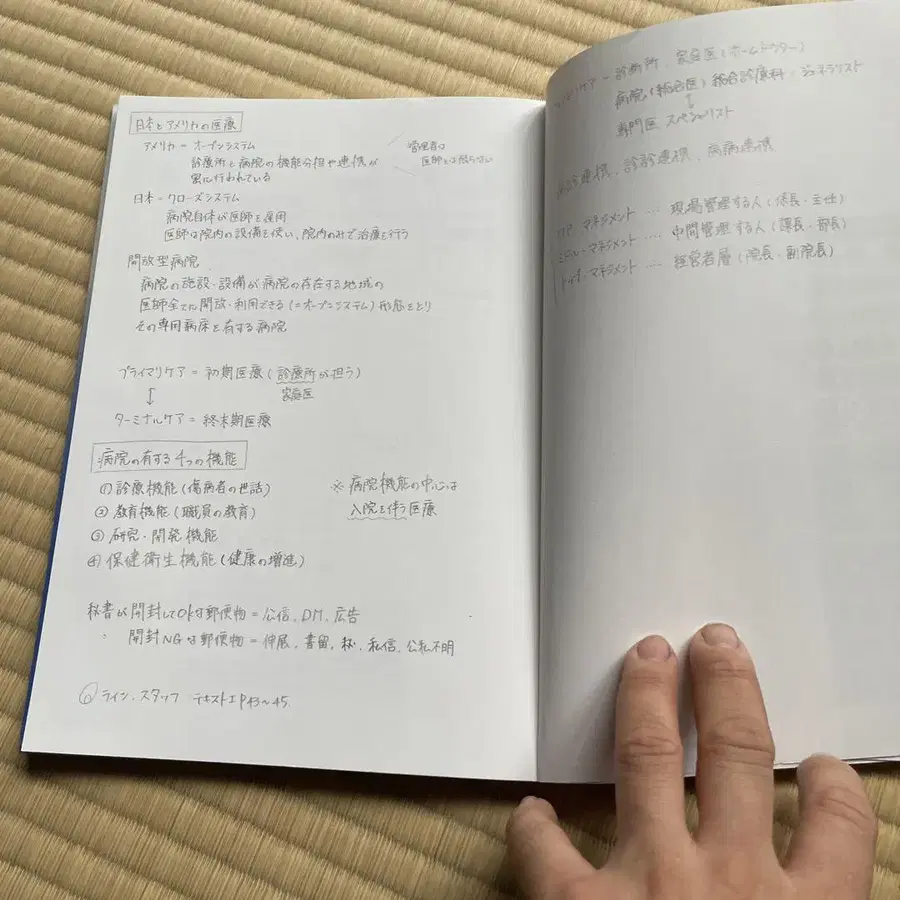 日本とアメリカの医療
アメリカ － オープンシステム
診療所と病院の機能分担や連携が
密に行われている
管理者は
医師とは限らない
日本 － クローズシステム
病院自体が医師を雇用
医師は院内の設備を使い、院内のみで治療を行う
開放型病院
病院の施設・設備が病院の存在する地域の
医師全てに開放・利用できる(=オープンシステム)形態をとり
その専用病床を有する病院
プライマリケア = 初期医療(診療所が担う)
家庭医
↕
ターミナルケア = 終末期医療
病院の有する4つの機能
① 診療機能(傷病者の世話)
② 教育機能(職員の教育)
③ 研究・開発機能
④ 保健衛生機能(健康の増進)
※ 病院機能の中心は
入院を伴う医療
秘書が開封してOKな郵便物 = 公信、DM、広告
〃 開封NGな郵便物 = 伸展、書留、秘、私信、公私不明
⑥ ライン、スタッフ テキストI P43～45
ケア － 診断所、家庭医(ホームドクター)
病院(総合医)総合診療科・ジェネラリスト
↕
専門医 スペシャリスト
連携、診診連携、病病連携
ロアーマネジメント … 現場管理する人(係長・主任)
ミドルーマネジメント … 中間管理する人(課長・部長)
トップーマネジメント … 経営者層(院長・副院長)